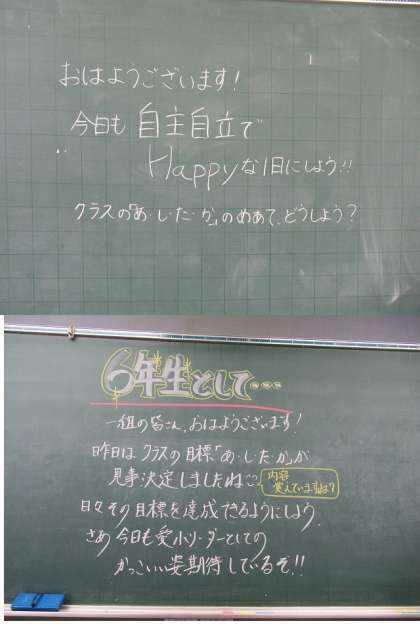 おはようございます!
今日も自主自立で
Happyな1日にしよう!!
クラスの「あ・し・た・か」のめあて、どうしよう?
6年生として・・・
一組の皆さん、おはようございます!
昨日はクラスの目標「あ・し・た・か」が
見事決定しましたね
内容
覚えていますね?
日々その目標を達成できるようにしよう。
さあ今日も愛小リーダーとしての
かっこいい姿期待しているぞ!!